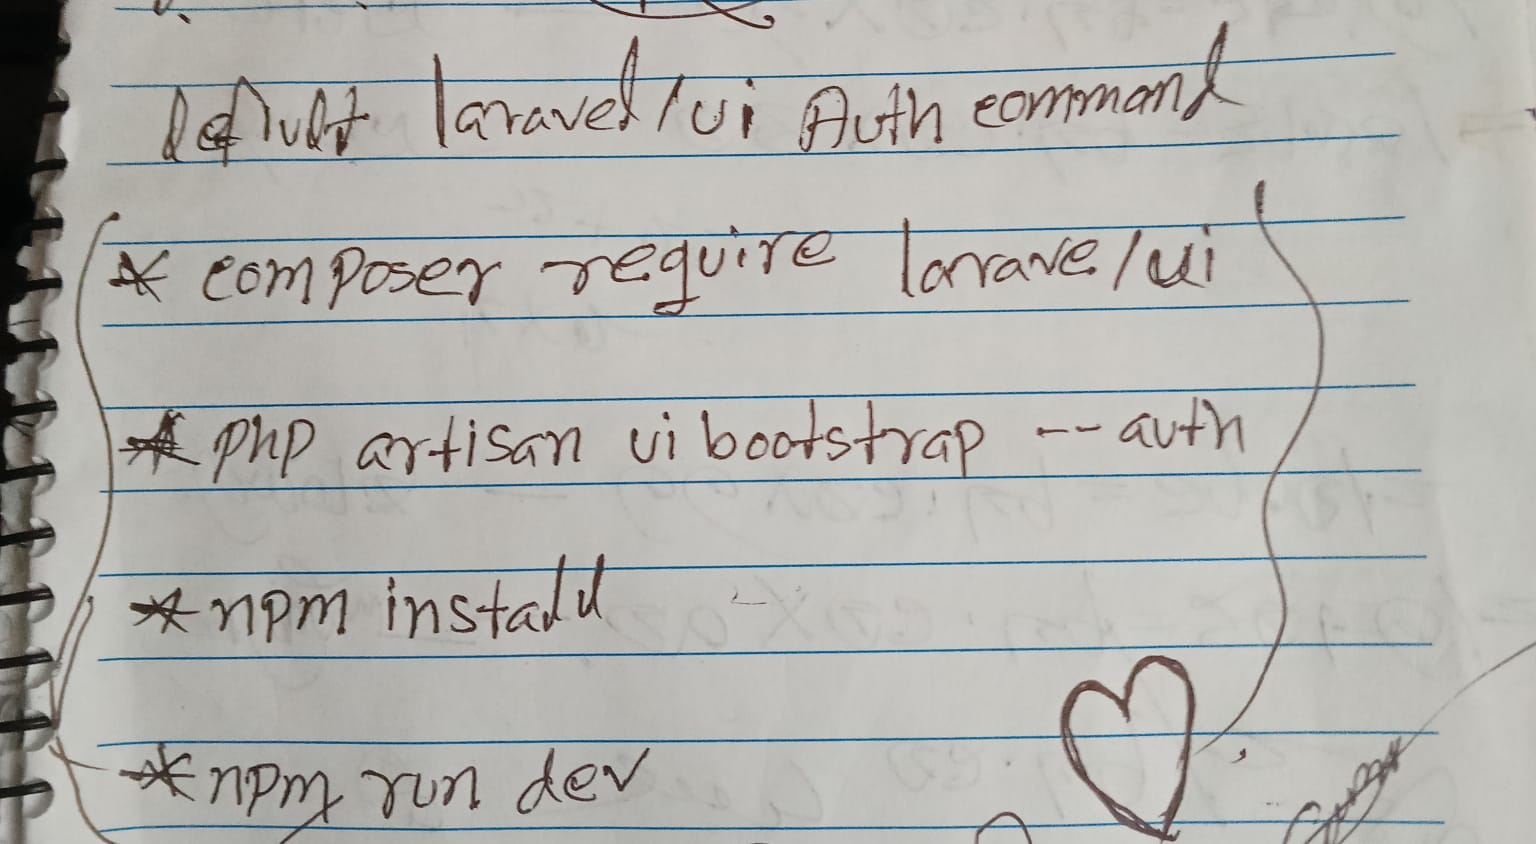 defult laravel/ui Auth command
* composer require larave/ui
* php artisan ui bootstrap -- auth
* npm install
* npm run dev